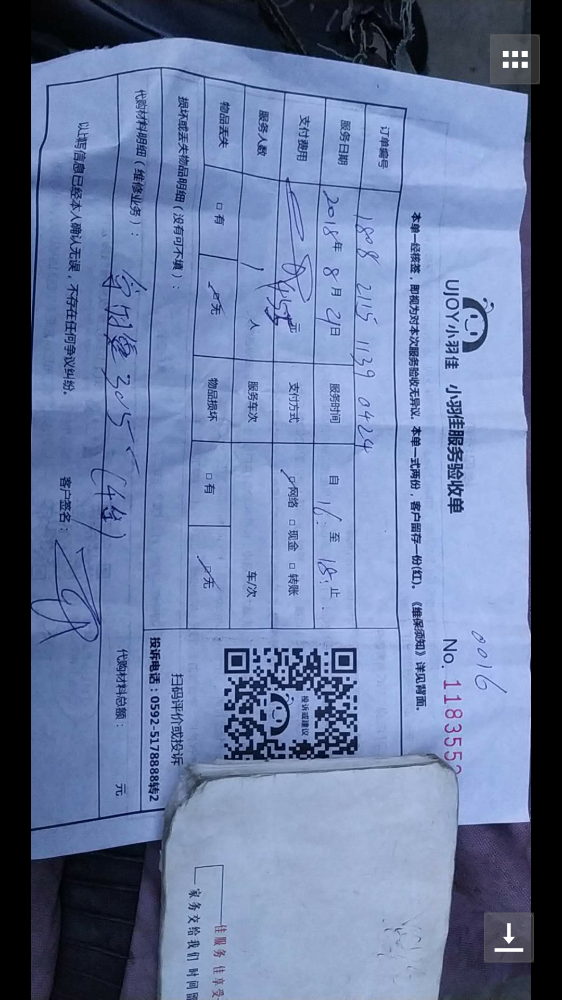 UJOY小羽佳 小羽佳服务验收单
0016
No. 1183552
本单一经核签，即视为对本次服务验收无异议。本单一式两份，客户留存一份(红)。《维保须知》详见背面。
订单编号 1808 2115 1139 0424
服务日期 2018年 8月 21日 服务时间 自 16: 至 18: 止
支付费用 元 支付方式 ☑网络 □现金 □转账
服务人数 1 人 服务车次 车/次
物品丢失 □有 ☑无 物品损坏 □有 ☑无
损坏或丢失物品明细（没有可不填）：
扫码评价或投诉
投诉电话：0592-5178888转2
投诉或建议
代购材料明细（维修业务）：
代购材料总额： 元
以上填写信息已经本人确认无误，不存在任何争议纠纷。
客户签名：
佳服务 佳享受
家务交给我们 时间留